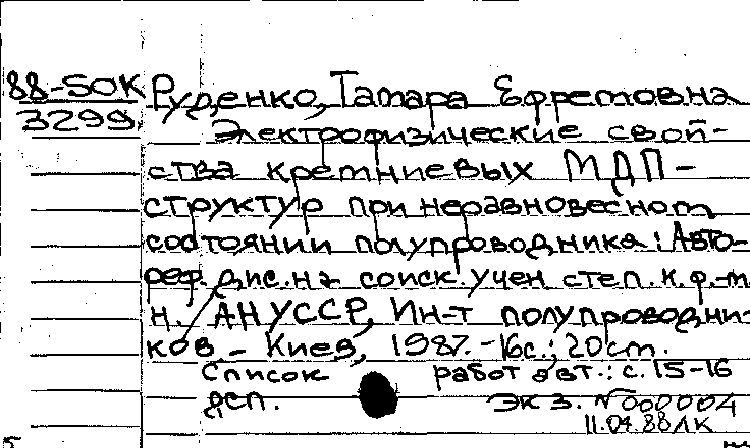 88-50K Руденко, Тамара Ефремовна
3299 Электрофизические свой-
ства кремниевых МДП-
структур при неравновесном
состоянии полупроводника: Авто-
реф. дис. на соиск. учен. степ. к.ф.-м.
н. / АН УССР, Ин-т полупроводни-
ков. - Киев, 1987. - 16с.; 20cm.
Список работ авт.: с. 15-16
ДСП. экз. №000004
11.04.88 ЛК